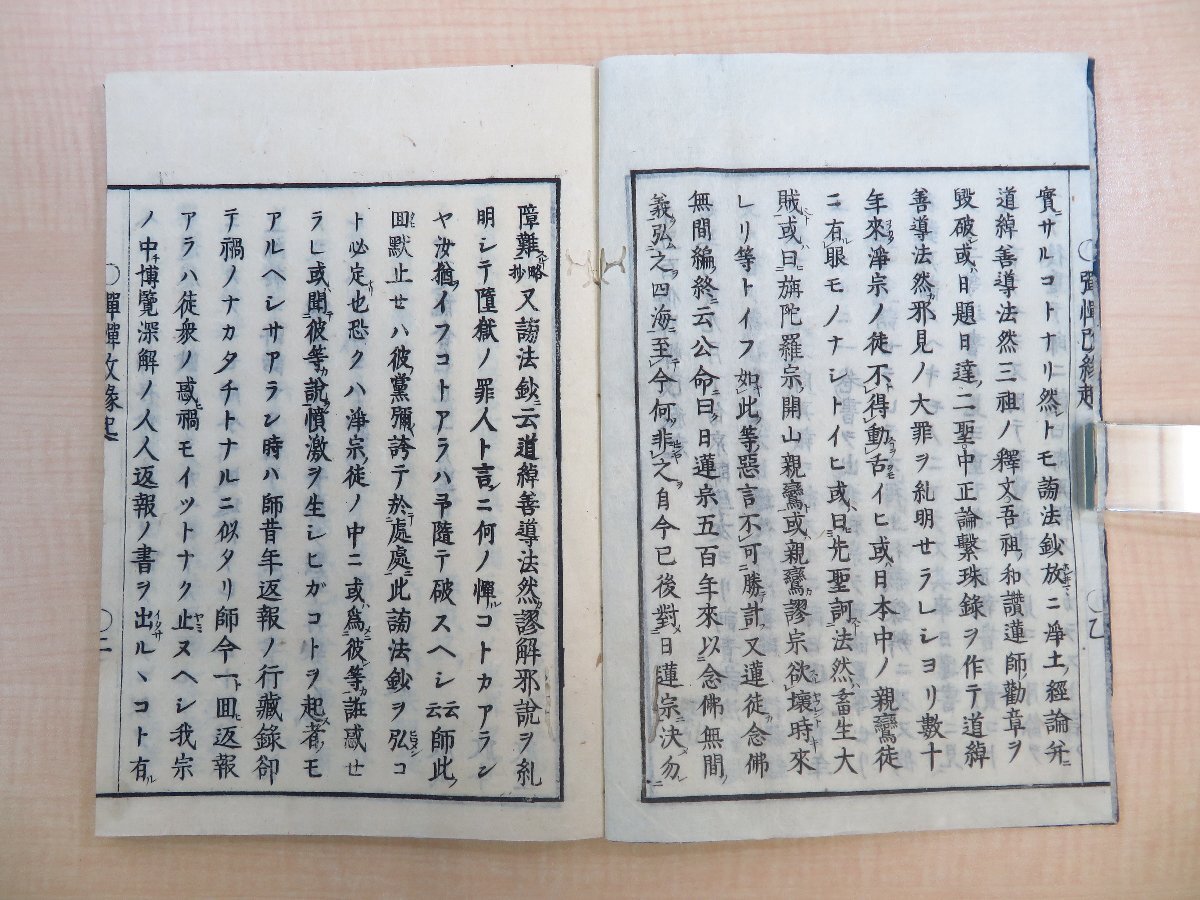 實サルコトナリ然トモ謗法鈔放ニ淨土經論弁ニ
道綽善導法然三祖ノ釋文吾祖ノ和讃蓮師ノ勸章ヲ
毀破ス或ハ日題日達ノ二聖中正論繫珠錄ヲ作テ道綽
善導法然カ邪見ノ大罪ヲ糺明セラレシヨリ數十
年來淨宗ノ徒不得動舌イヒ或ハ日本中ノ親鸞徒
ニ有眼モノナシトイヒ或ハ曰先聖訶法然畜生大
賊或ハ曰旃陀羅宗開山親鸞或ハ親鸞カ謬宗欲壞時來
レリ等トイフ如此等惡言不可勝計又蓮徒カ念佛
無間編ノ終ニ云公命曰日蓮宗五百年來以念佛無間ノ
義弘之四海至今何非之自今已後對日蓮宗決勿
障難略抄又謗法鈔ニ云道綽善導法然カ謬解邪說ヲ糺
明シテ墮獄ノ罪人ト言ニ何ノ憚ルコトカアラン
ヤ汝猶イフコトアラハ予隨テ破スヘシ云云師此ノ
囬默止セハ彼黨彌誇テ於處處ニ此謗法鈔ヲ弘コ
ト必定也恐クハ淨宗ノ徒ノ中ニ或ハ爲彼等誑惑セ
ラレ或ハ聞彼等カ說憤激ヲ生シヒガコトヲ起者モ
アルヘシサアラン時ハ師昔年返報ノ行藏錄却
テ禍ノナカタチトナルニ似タリ師今一囬返報
アラハ徒衆ノ惑禍モイツトナク止ヌヘシ我宗
ノ中博覽深解ノ人人返報ノ書ヲ出ルヽコト有ル